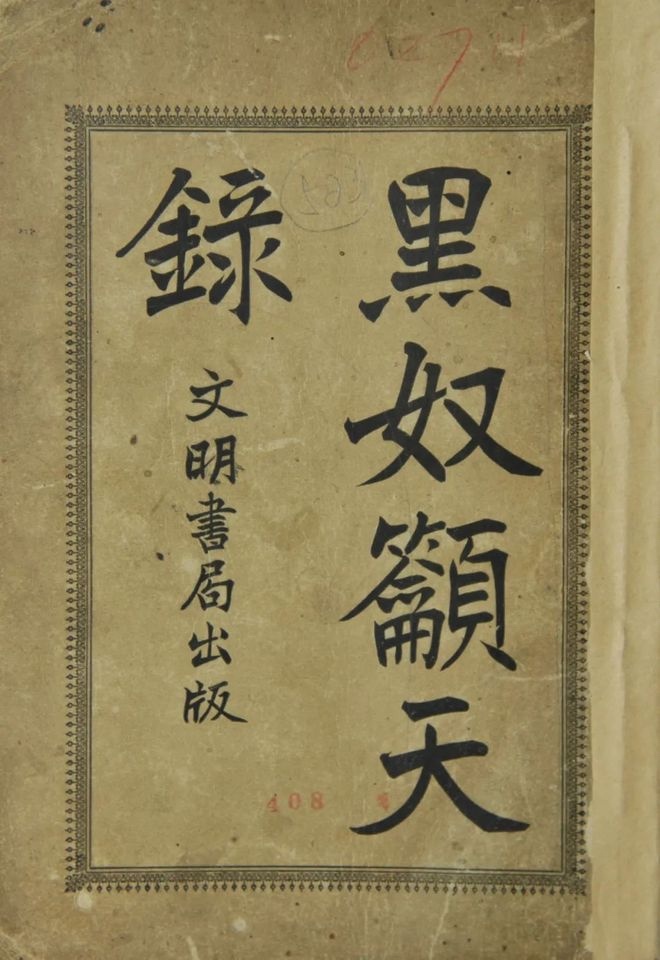 黑奴籲天
錄
文明書局出版
408